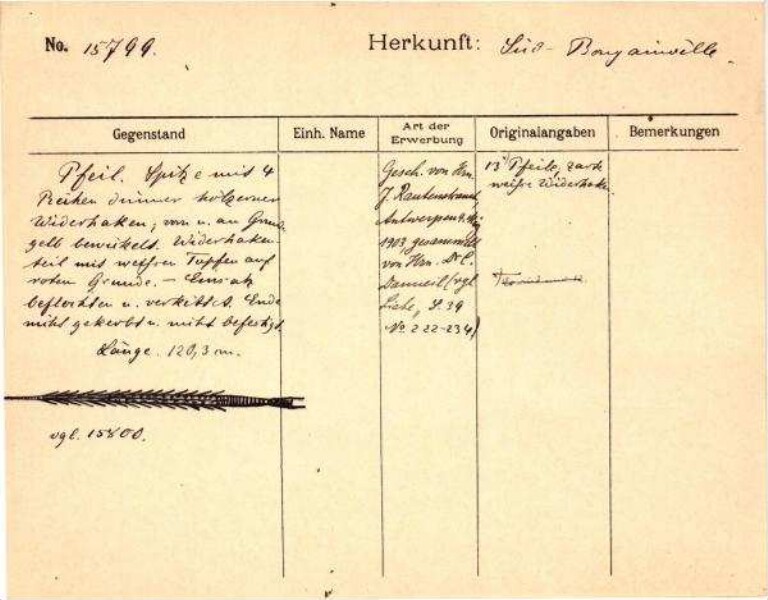 No. 15799.
Herkunft: Süd-Bougainville.
Gegenstand
Einh. Name
Art der Erwerbung
Originalangaben
Bemerkungen
Pfeil. Spitze mit 4
Reihen dünner hölzerner
Widerhaken; vorn u. am Grunde
gelb bewickelt. Widerhaken-
teil mit weißen Tupfen auf
rotem Grunde. – Einsatz
beflochten u. verkittet. Ende
nicht gekerbt u. nicht befestigt.
Länge. 120,3 cm.
vgl. 15800.
Gesch. von Hrn.
J. Rautenstrauch,
Antwerpen
1903, gesammelt
von Hrn. Dr. C.
Danneil (vgl.
Liste, S. 39
No 222-234)
13 Pfeile,
weiße Widerhaken